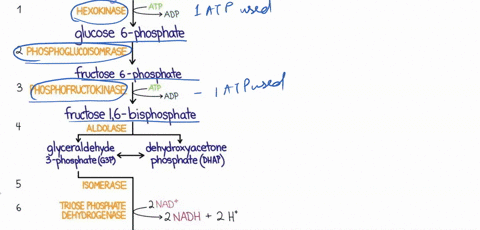 1 HEXOKINASE ATP ADP 1 ATP used
glucose 6-phosphate
2 PHOSPHOGLUCOISOMRASE
fructose 6-phosphate
3 PHOSPHOFRUCTOKINASE ATP ADP - 1 ATP used
fructose 1,6-bisphosphate
4 ALDOLASE
glyceraldehyde 3-phosphate (G3P)
dehydroxyacetone phosphate (DHAP)
5 ISOMERASE
6 TRIOSE PHOSPHATE DEHYDROGENASE
2 NAD⁺
2 NADH + 2 H⁺